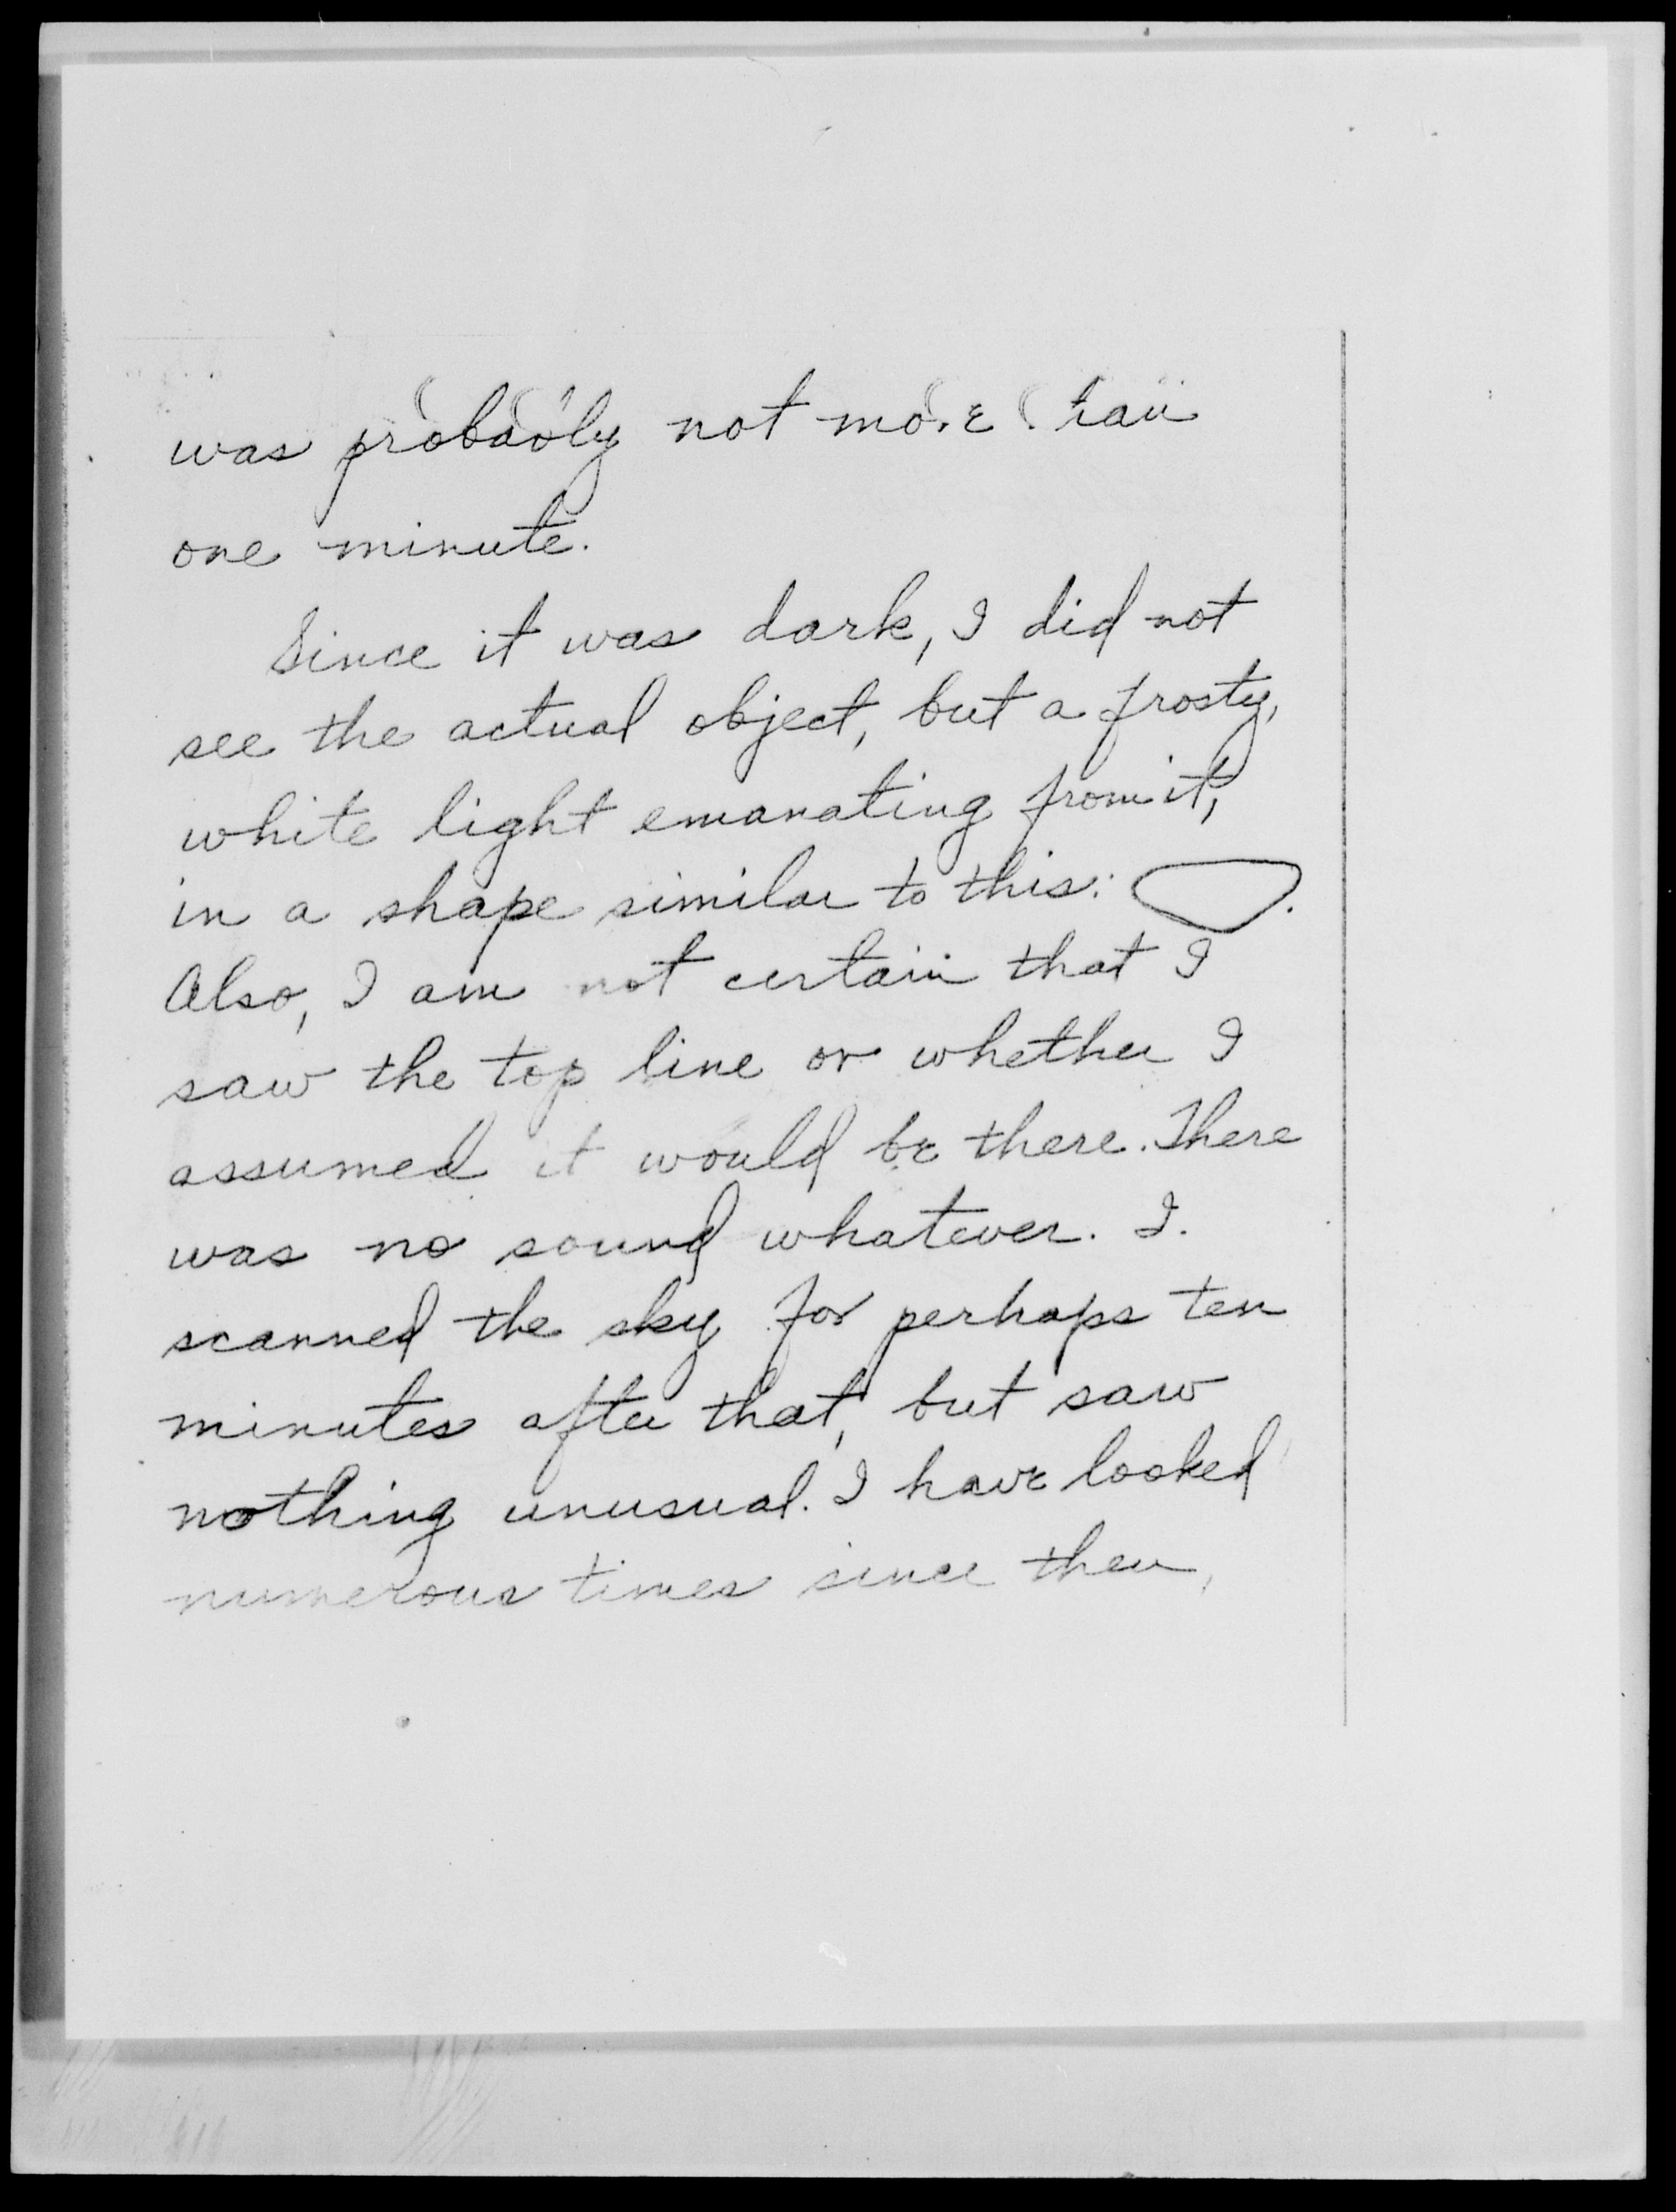 was probably not more than
one minute.
Since it was dark, I did not
see the actual object, but a frosty,
white light emanating from it,
in a shape similar to this: .
Also, I am not certain that I
saw the top line or whether I
assumed it would be there. There
was no sound whatever. I
scanned the sky for perhaps ten
minutes after that, but saw
nothing unusual. I have looked
numerous times since then,